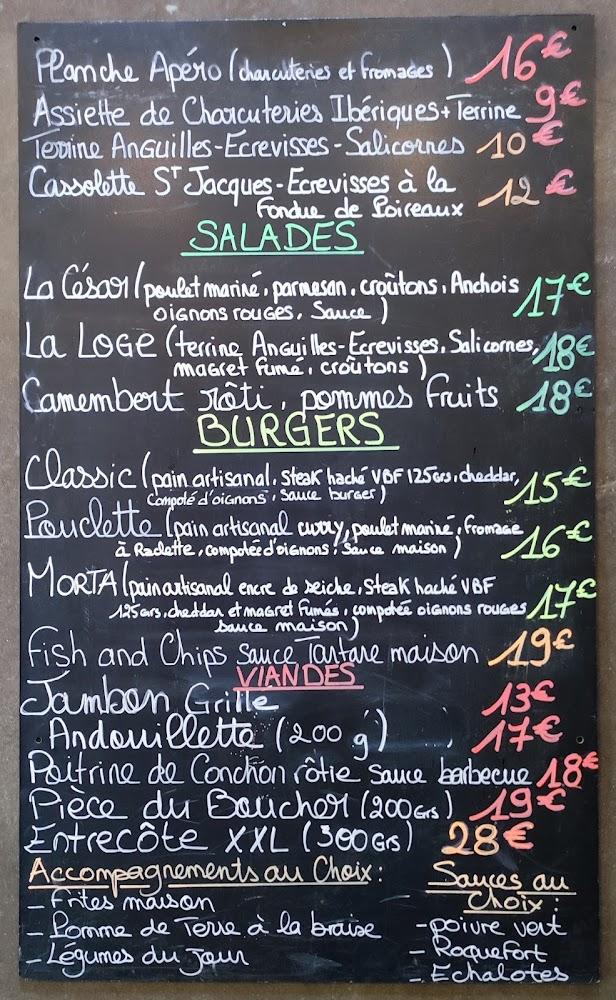 Planche Apéro (charcuteries et fromages) 16€
Assiette de Charcuteries Ibériques + Terrine 9€
Terrine Anguilles - Ecrevisses - Salicornes 10€
Cassolette St Jacques - Ecrevisses à la 12€
Fondue de Poireaux
SALADES
La César (poulet mariné, parmesan, croûtons, Anchois 17€
oignons rouges, Sauce)
La LOGE (terrine Anguilles - Ecrevisses, Salicornes, 18€
magret fumé, croûtons)
Camembert rôti, pommes Fruits 18€
BURGERS
Classic (pain artisanal, Steak haché VBF 125Grs, cheddar, 15€
Compoté d'oignons, sauce burger)
Poulette (pain artisanal curry, poulet mariné, fromage 16€
à Raclette, compotée d'oignons, Sauce maison)
MORTA (pain artisanal encre de seiche, Steak haché VBF 17€
125Grs, cheddar et magret Fumés, compotée oignons rouges
sauce maison)
Fish and Chips Sauce Tartare maison 19€
VIANDES
Jambon Grille 13€
Andouillette (200 g) 17€
Poitrine de Conchon rôtie Sauce barbecue 18€
Pièce du Boucher (200Grs) 19€
Entrecôte XXL (300Grs) 28€
Accompagnements au Choix :
- Frites maison
- Pomme de Terre à la braise
- Légumes du Jour
Sauces au
Choix :
- poivre vert
- Roquefort
- Echalotes